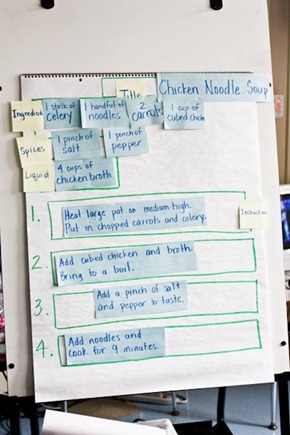 Title
Chicken Noodle Soup
Ingredient
1 stalk of
celery
1 handful of
noodles
2
carrots
1 cup of
cubed chicken
Spices
1 pinch of
salt
1 pinch of
pepper
Liquid
4 cups of
chicken broth
1. Heat large pot on medium high.
Put in chopped carrots and celery.
Instructions
2. Add cubed chicken and broth.
Bring to a boil.
3. Add a pinch of salt
and pepper to taste.
4. Add noodles and
cook for 9 minutes.